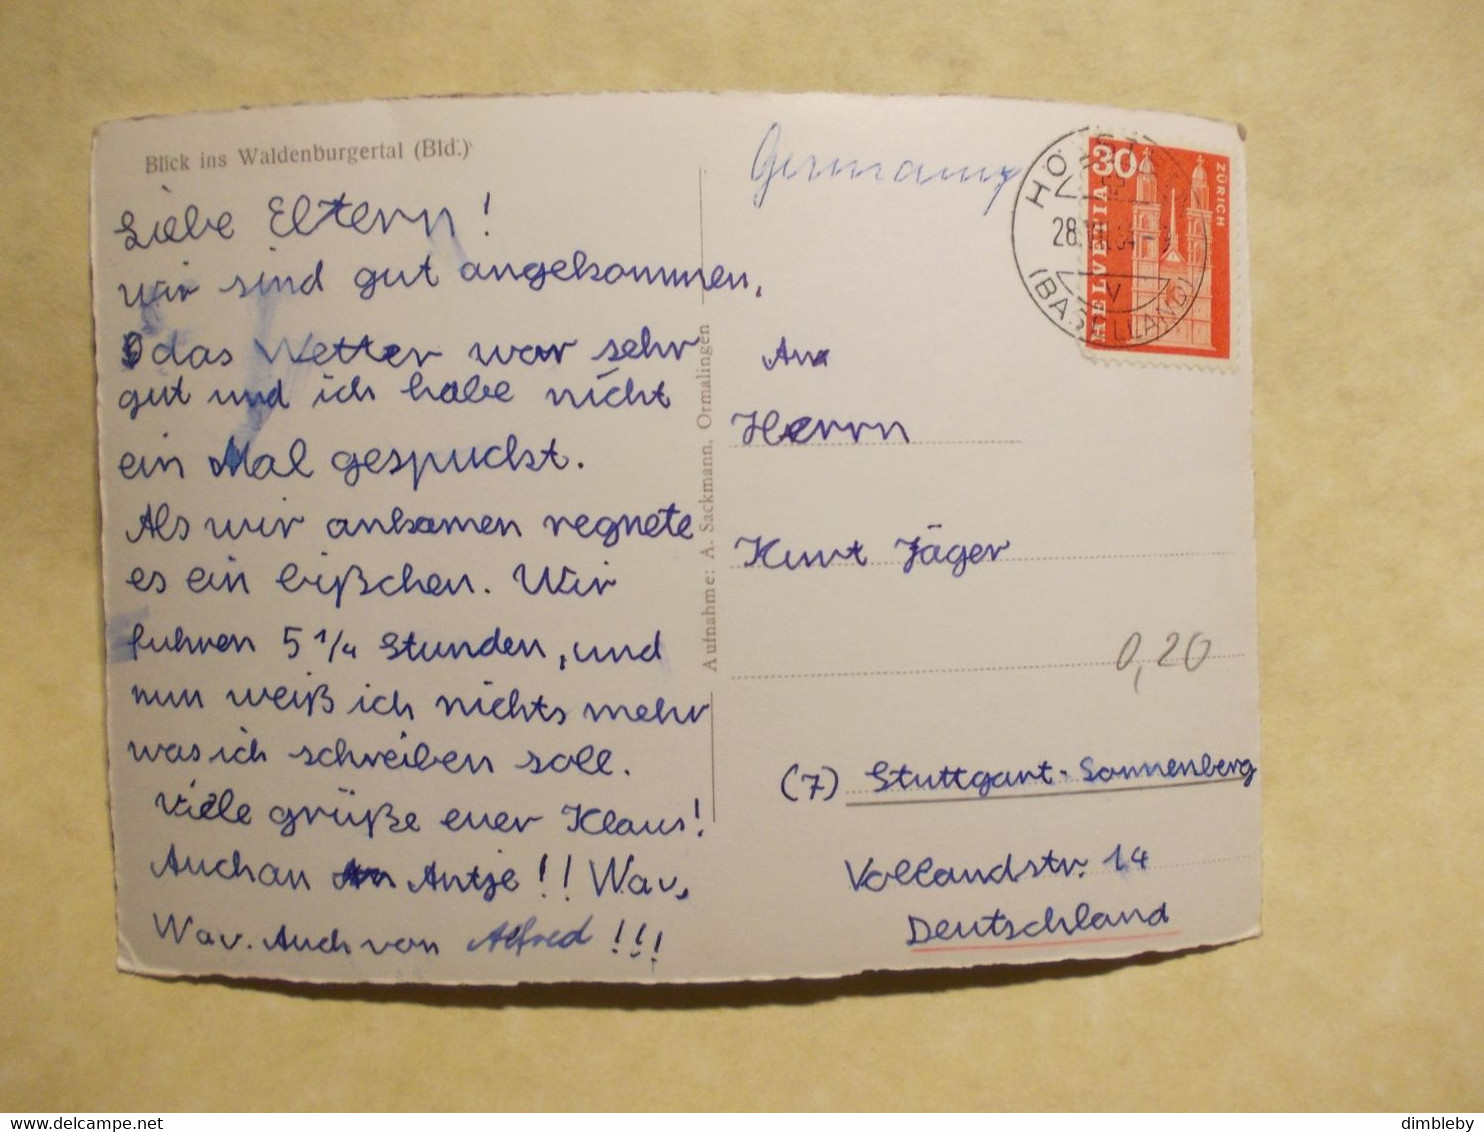 Blick ins Waldenburgertal (Bld.)
Liebe Eltern!
wir sind gut angekommen,
das Wetter war sehr
gut und ich habe nicht
ein Mal gespuckt.
Als wir ankamen regnete
es ein bißchen. Wir
fuhren 5 1/4 Stunden, und
nun weiß ich nichts mehr
was ich schreiben soll.
Viele grüße euer Klaus!
Auch an Antje!! Wav,
Wav. Auch von Alfred!!!
Aufnahme: A. Sackmann, Ormalingen
Germany
30
ZÜRICH
HELVETIA
(BASELLAND)
An
Herrn
Kurt Jäger
0,20
(7) Stuttgart-Sonnenberg
Vollandstr. 14
Deutschland
delcampe.net
dimbleby